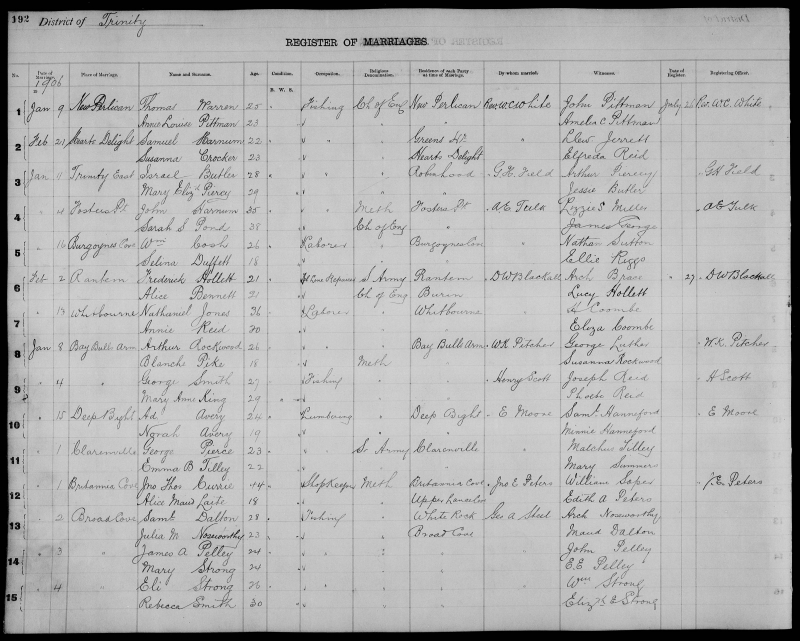 192 District of Trinity
REGISTER OF MARRIAGES
No. Date of Marriage. Place of Marriage. Name and Surname. Age. Condition. Occupation. Religious Denomination. Residence of each Party at time of Marriage. By whom married. Witnesses. Date of Register. Registering Officer.
1906 B. W. S.
1 Jan 9 New Perlican Thomas Warren 25 " Fishing Ch of Eng New Perlican Rev. W.C. White John Pittman July 26 Rev. W.C. White
Annie Louise Pittman 23 " " " Amelia C Pittman
2 Feb 21 Hearts Delight Samuel Harnum 22 " " " Greens Hr " Llew Jerrett
Susanna Crocker 23 " " Hearts Delight Elfreda Reid
3 Jan 11 Trinity East Israel Butler 28 " " " Robinhood G.H. Field Arthur Piercey " G H Field
Mary Elizth Piercy 29 " " " Jessie Butler
4 " 4 Fosters Pt John Harnum 35 " " Meth Fosters Pt A.E. Tulk Lizzie S Miller " A E Tulk
Sarah S Pond 38 " Ch of Eng " James George
5 " 16 Burgoynes Cove Wm Cosh 26 " Laborer " Burgoynes Cove " Nathan Sutton
Selina Duffett 18 " " " Ellie Riggs
6 Feb 2 Rantem Frederick Hollett 21 " Line Repairer S Army Rantem D W Blackall Arch Brace " 27 D W Blackall
Alice Bennett 21 " Ch of Eng Burin Lucy Hollett
7 " 13 Whitbourne Nathaniel Jones 36 " Laborer " Whitbourne " H Coombe
Annie Reid 20 " " " Eliza Coombe
8 Jan 8 Bay Bulls Arm Arthur Rockwood 26 " " " Bay Bulls Arm W.K. Pitcher George Luther " W.K. Pitcher
Blanche Pike 18 " Meth " Susanna Rockwood
9 " 4 " George Smith 27 " Fishing " " Henry Scott Joseph Reid " H Scott
Mary Anne King 29 " " " Phoebe Reid
10 " 15 Deep Bight Ad. Avery 24 " Lumbering " Deep Bight E Moore Saml Hanneford " E Moore
Norah Avery 19 " " " Minnie Hanneford
11 " 1 Clarenville George Pierce 23 " " S. Army Clarenville " Malchus Tilley
Emma B Tilley 22 " " " Mary Summer
12 " 1 Britannia Cove Jno Thos Currie 44 " Shopkeeper Meth Britannia Cove Jno E Peters William Soper " J.E. Peters
Alice Maud Laite 18 " " Upper Edith A Peters
13 " 2 Broad Cove Saml Dalton 28 " Fishing " White Rock Geo A Steel Arch Noseworthy
Julia M Noseworthy 23 " " Broad Cove Maud Dalton
14 " 3 " James A Pelley 24 " " " " " John Pelley
Mary Strong 24 " " " E.E Pelley
15 " 4 " Eli Strong 26 " " " " " Wm Strong
Rebecca Smith 30 " " " Elizth E Strong